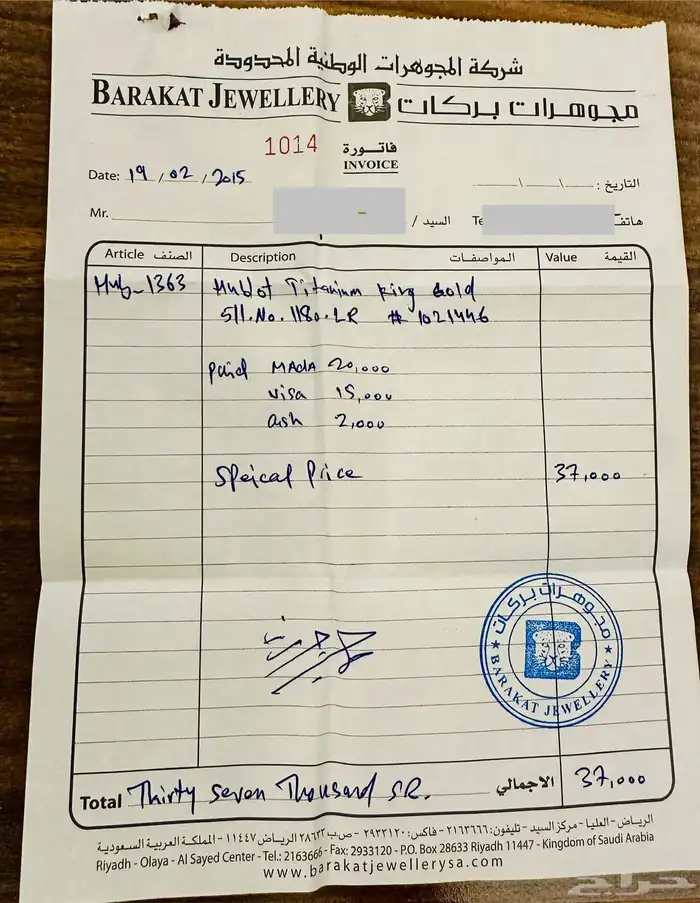 شركة المجوهرات الوطنية المحدودة
BARAKAT JEWELLERY مجوهرات بركات
1014 فاتورة
INVOICE
Date: 19/02/2015 التاريخ: \ \
Mr. السيد / Te هاتف
Article الصنف Description المواصفات Value القيمة
Hub-1363 Hublot Titanium king Gold
511.No.1180.LR # 1021446
paid MAdA 20,000
visa 15,000
cash 2,000
Speical Price 37,000
مجوهرات بركات
BARAKAT JEWELLERY
Total Thirty Seven Thousand SR. الاجمالي 37,000
الرياض - العليا - مركز السيد - تليفون: ٢١٦٣٦٦٦ - فاكس: ٢٩٣٣١٢٠ - ص.ب ٢٨٦٣٣ الرياض ١١٤٤٧ - المملكة العربية السعودية
Riyadh - Olaya - Al Sayed Center - Tel.: 2163666 - Fax: 2933120 - P.O. Box 28633 Riyadh 11447 - Kingdom of Saudi Arabia
www.barakatjewellerysa.com
حراج